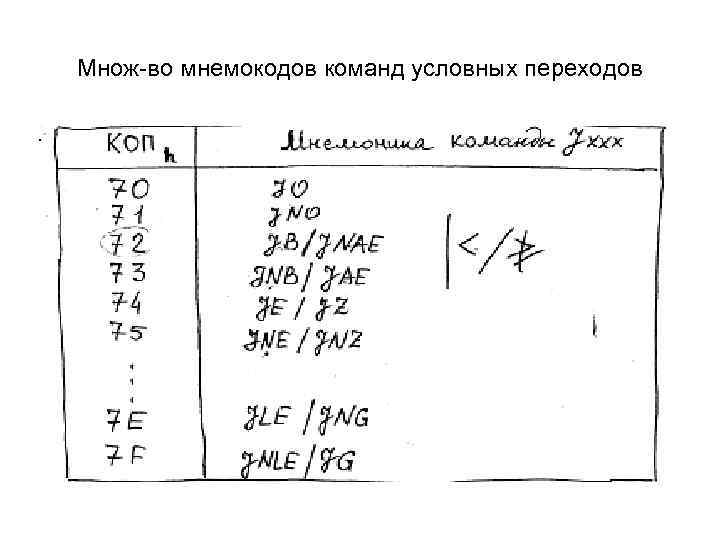 Множ-во мнемокодов команд условных переходов
КОП h Мнемоника команды Jxxx
70 JO
71 JNO
72 JB/JNAE | </≱
73 JNB/JAE
74 JE/JZ
75 JNE/JNZ
⋮
7E JLE/JNG
7F JNLE/JG